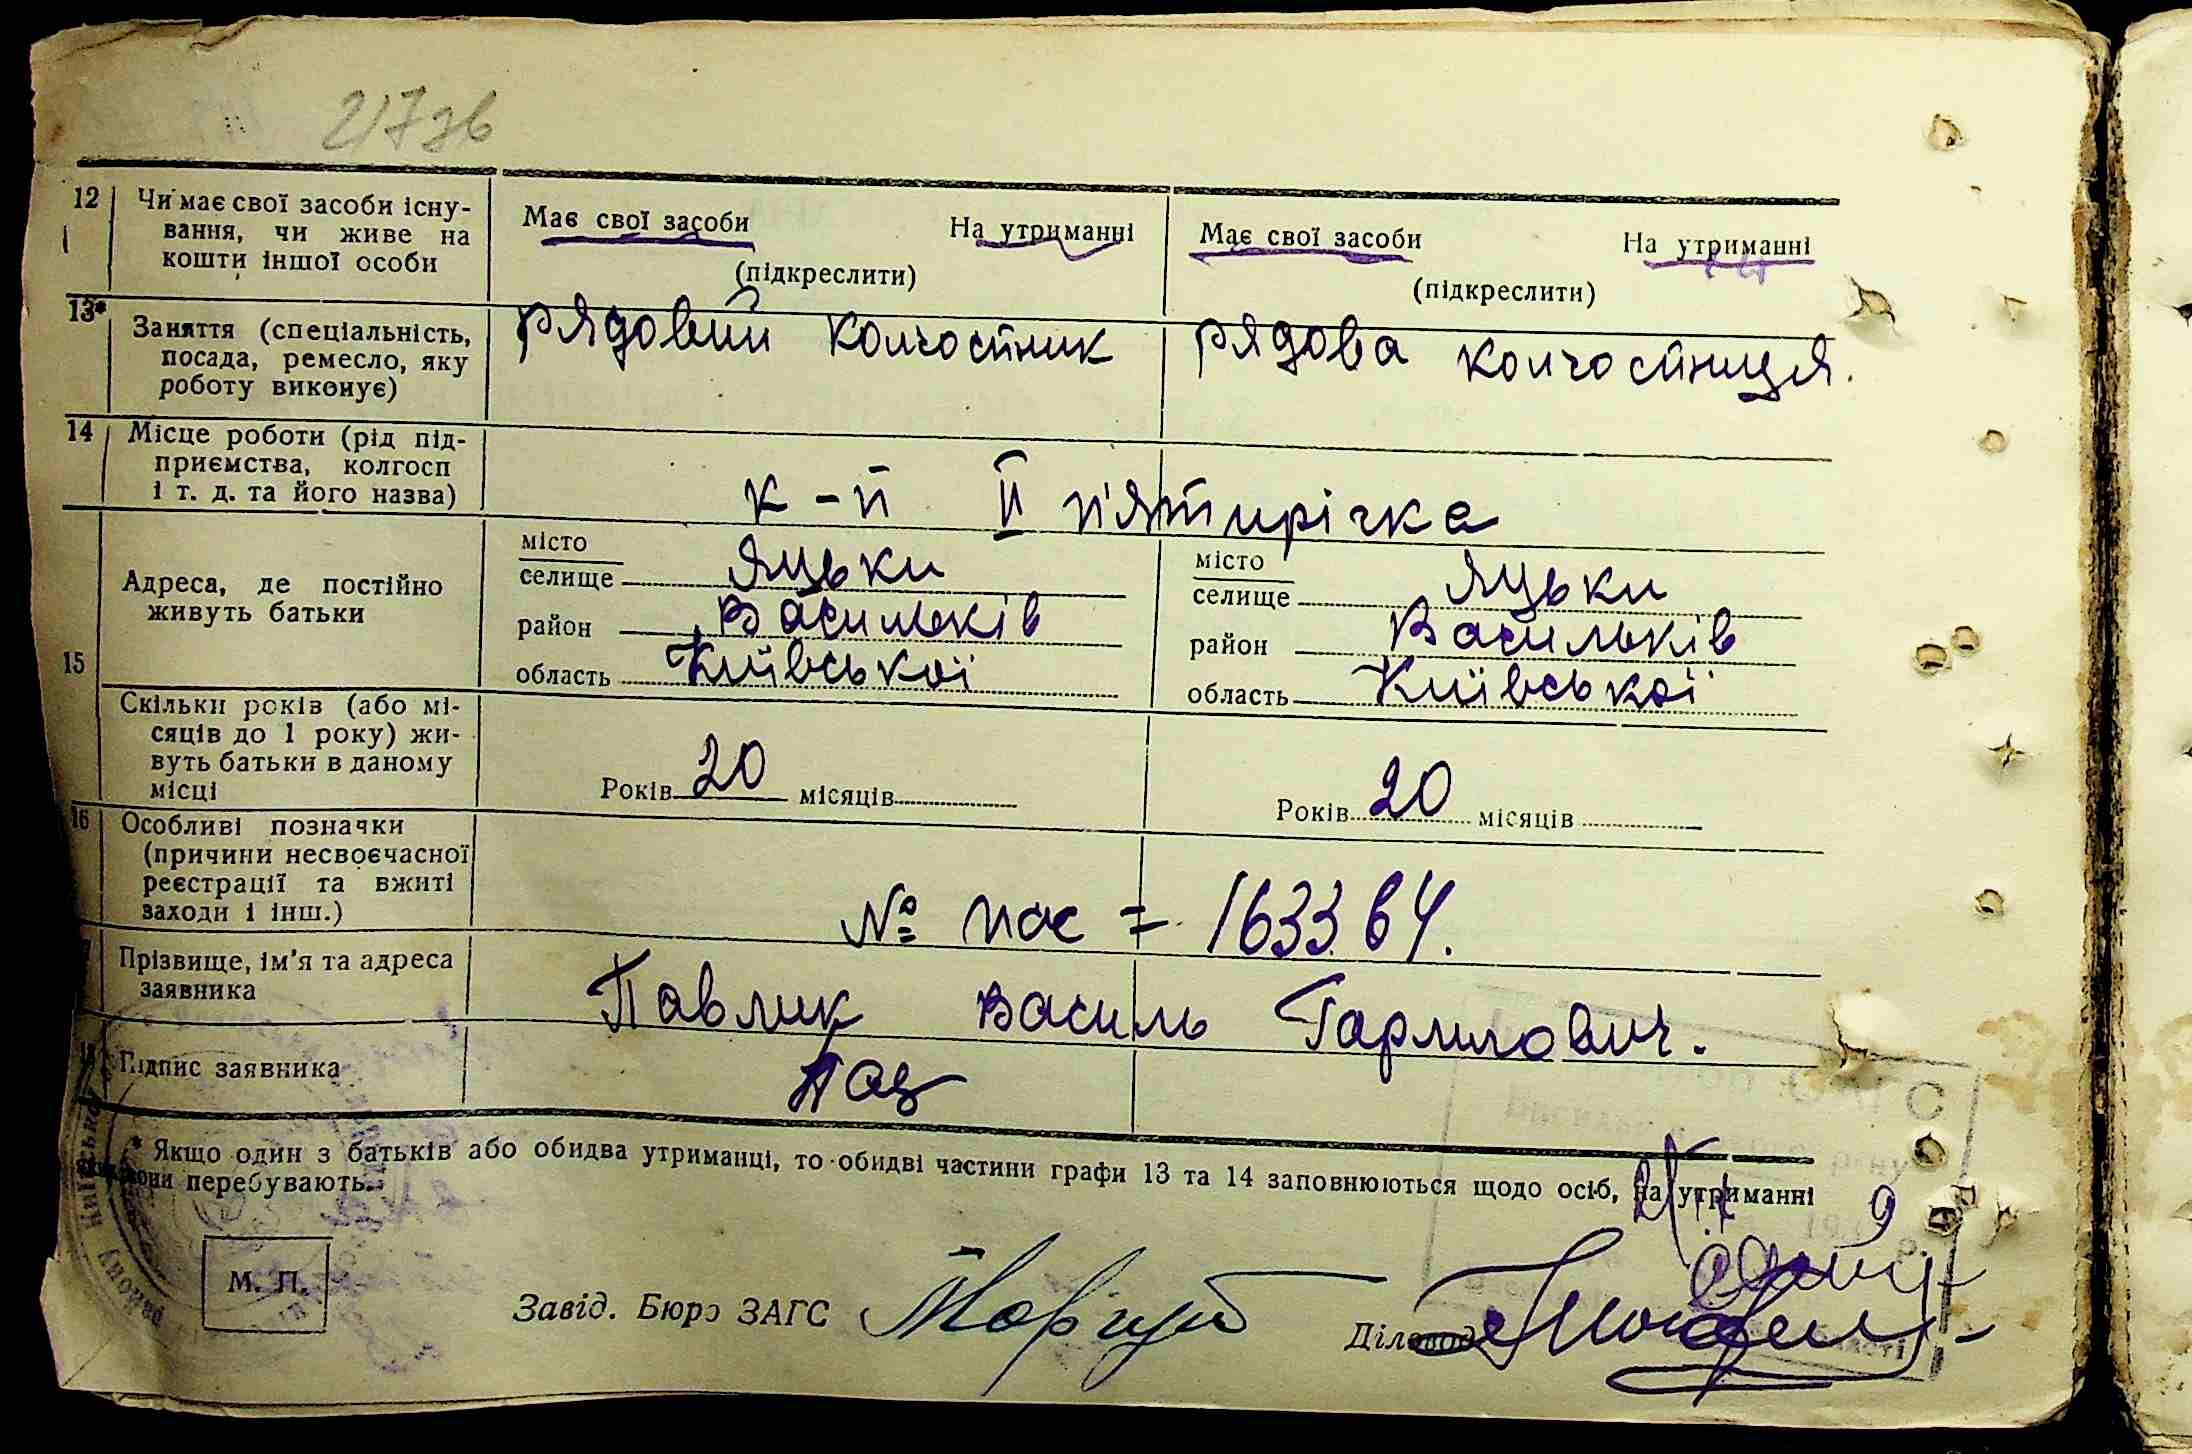 217зв
12 Чи має свої засоби існу-
вання, чи живе на
кошти іншої особи
Має свої засоби На утриманні
(підкреслити)
Має свої засоби На утриманні
(підкреслити)
13* Заняття (спеціальність,
посада, ремесло, яку
роботу виконує)
рядовий колгостник
рядова колгостниця.
14 Місце роботи (рід під-
приємства, колгосп
і т. д. та його назва)
к-п ІІ п'ятирічка
15 Адреса, де постійно
живуть батьки
місто
селище Яцьки
район Васильків
область Київської
місто
селище Яцьки
район Васильків
область Київської
Скільки років (або мі-
сяців до 1 року) жи-
вуть батьки в даному
місці
Років 20 місяців
Років 20 місяців
16 Особливі позначки
(причини несвоєчасної
реєстрації та вжиті
заходи і інш.)
№ пас = 163364.
Прізвище, ім'я та адреса
заявника
Павлик Василь Гарилович.
Підпис заявника
Паз
* Якщо один з батьків або обидва утриманці, то обидві частини графи 13 та 14 заповнюються щодо осіб, на утриманні
вони перебувають.
М. П.
Завід. Бюро ЗАГС
Діловод